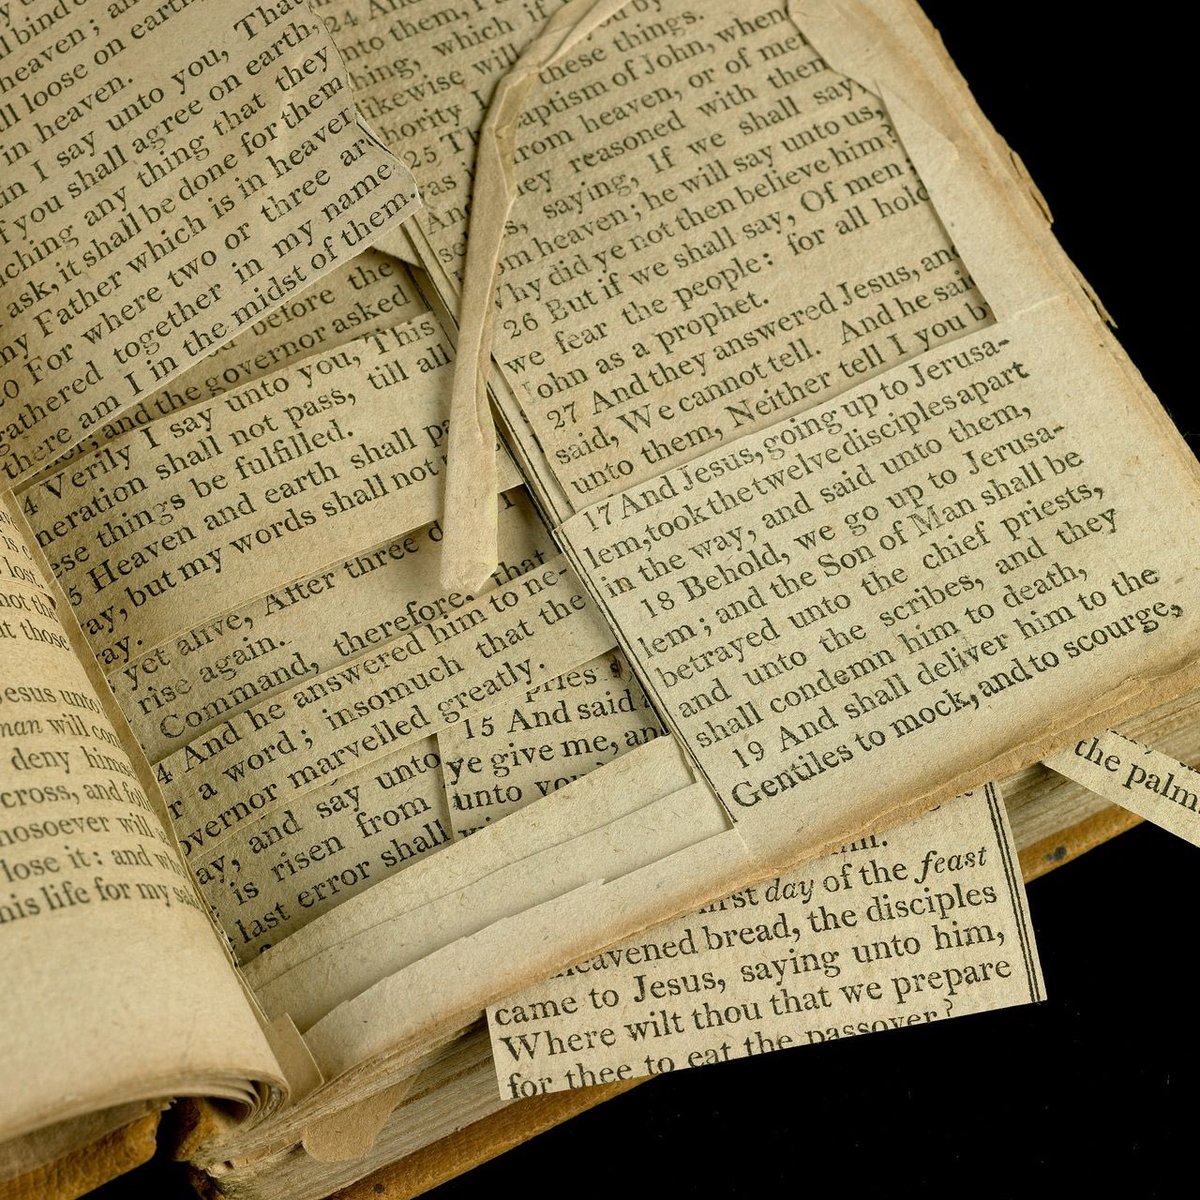 heaven; and
all loose on earth
in heaven.
I say unto you, That
f you shall agree on earth,
any thing that they
ask, it shall be done for them
my Father which is in heaven
For where two or three are
gathered together in my name
there am I in the midst of them.
before the
and the governor asked
4 Verily I say unto you, This
neration shall not pass, till all
ese things be fulfilled.
5 Heaven and earth shall pa
ay, but my words shall not
ay.
yet alive, After three d
rise again.
Command, therefore, that
4 And he answered him to ne-
r a word; insomuch that the
overnor marvelled greatly.
ay, and say unto
is risen from
last error shall
15 And said
ye give me, an
unto you
24 An
nto them, I
hing, which if
ikewise will
hority I
these things.
25 Th
aptism of John, when
from heaven, or of me
hey reasoned with them
saying, If we shall say
om heaven; he will say unto us,
Why did ye not then believe him?
26 But if we shall say, Of men;
we fear the people: for all hold
John as a prophet.
27 And they answered Jesus, and
said, We cannot tell. And he said
unto them, Neither tell I you b
17 And Jesus, going up to Jerusa-
lem, took the twelve disciples apart
in the way, and said unto them,
18 Behold, we go up to Jerusa-
lem; and the Son of Man shall be
betrayed unto the chief priests,
and unto the scribes, and they
shall condemn him to death,
19 And shall deliver him to the
Gentiles to mock, and to scourge,
lost.
not the
t those
Jesus unto
man will con
deny himse
cross, and fol
hosoever will
lose it: and wh
his life for my sa
the palm
him.
first day of the feast
leavened bread, the disciples
came to Jesus, saying unto him,
Where wilt thou that we prepare
for thee to eat the passover?